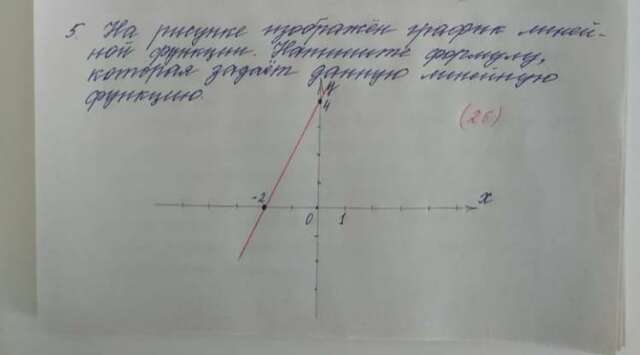 5. На рисунке изображён график линей-
ной функции. Напишите формулу,
которая задаёт данную линейную
функцию.
y
4
(2б)
-2
x
0 1